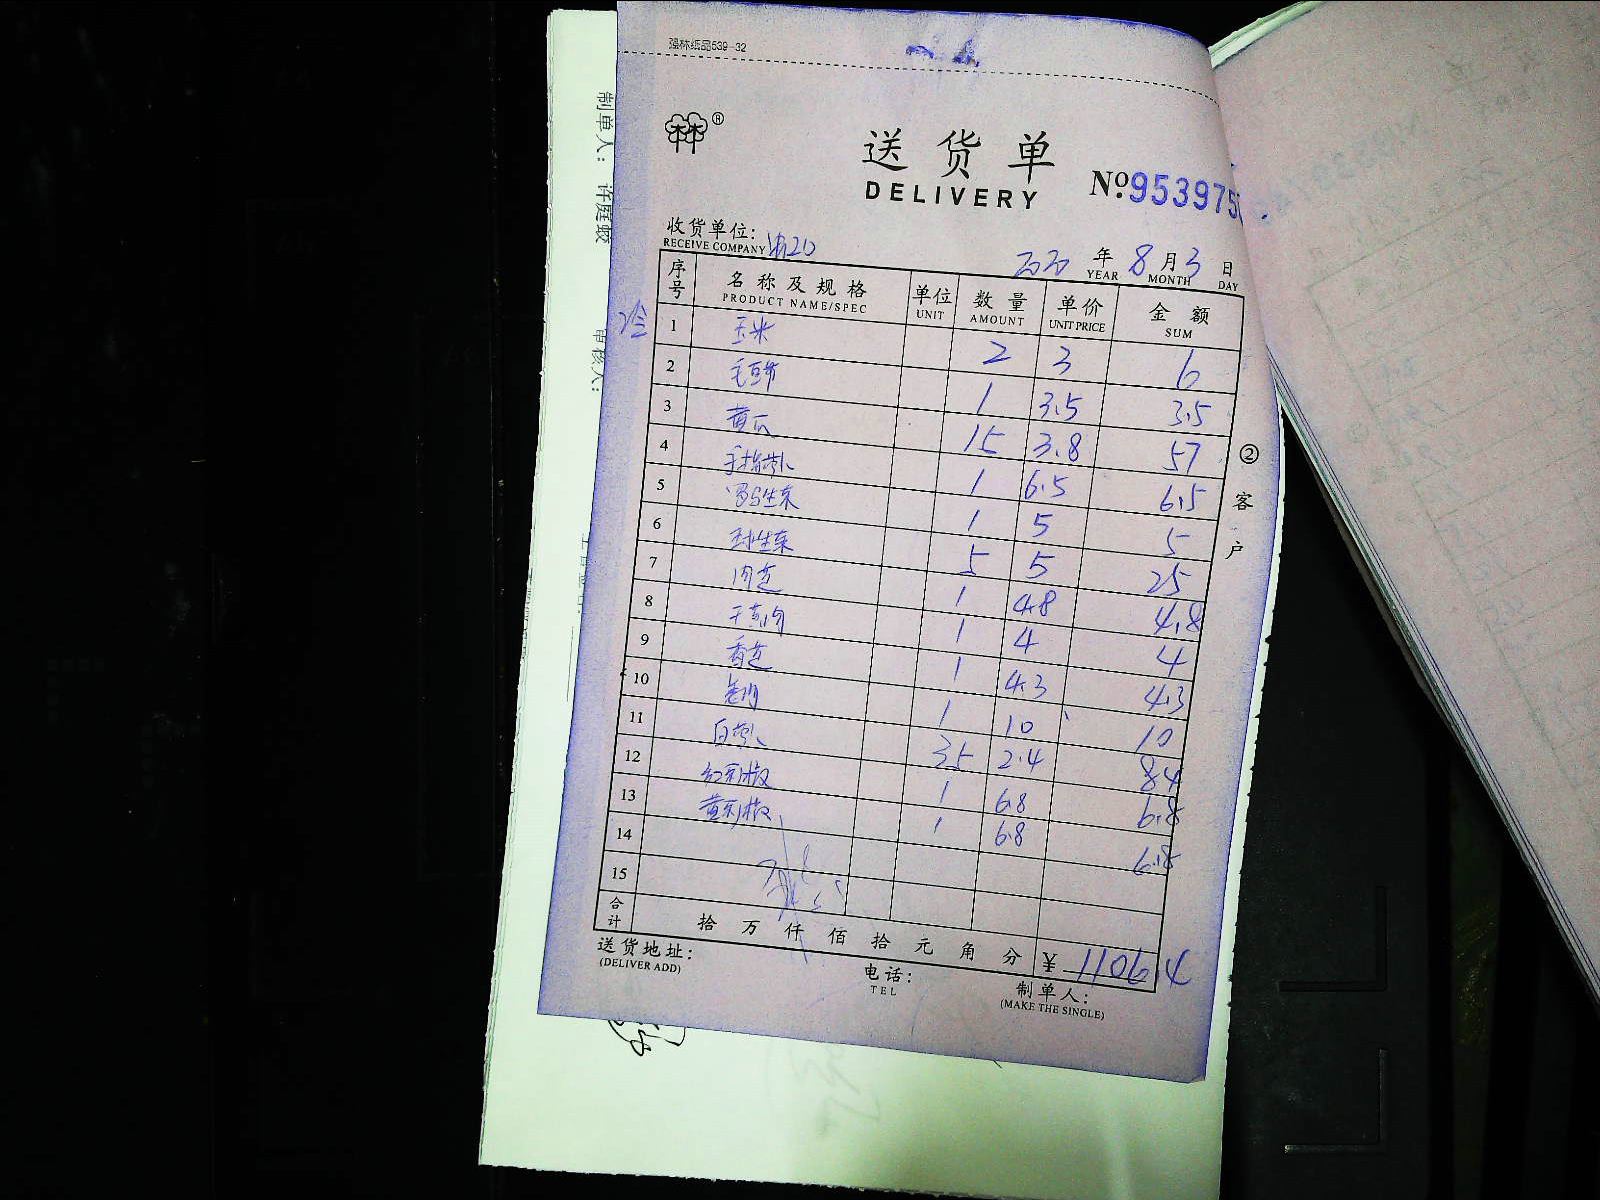 强林纸品539-32
®
送货单
DELIVERY
№953975
收货单位:
RECEIVE COMPANY
2020 年 8 月 3 日
YEAR MONTH DAY
序号 名称及规格 单位 数量 单价 金额
PRODUCT NAME/SPEC UNIT AMOUNT UNIT PRICE SUM
1 玉米 2 3 6
2 毛豆节 1 3.5 3.5
3 黄瓜 15 3.8 57
4 手指萝卜 1 6.5 6.5
5 罗马生菜 1 5 5
6 球生菜 5 5 25
7 内芝 1 4.8 4.8
8 1 4 4
9 香芝 1 4.3 4.3
10 1 10 10
11 白萝卜 35 2.4 84
12 红彩椒 1 6.8 6.8
13 黄彩椒 1 6.8 6.8
14
15
合计 拾 万 仟 佰 拾 元 角 分 ¥
送货地址:
(DELIVER ADD)
电话:
TEL
制单人:
(MAKE THE SINGLE)
②客户
制单人: 许庭蛟
审核人: